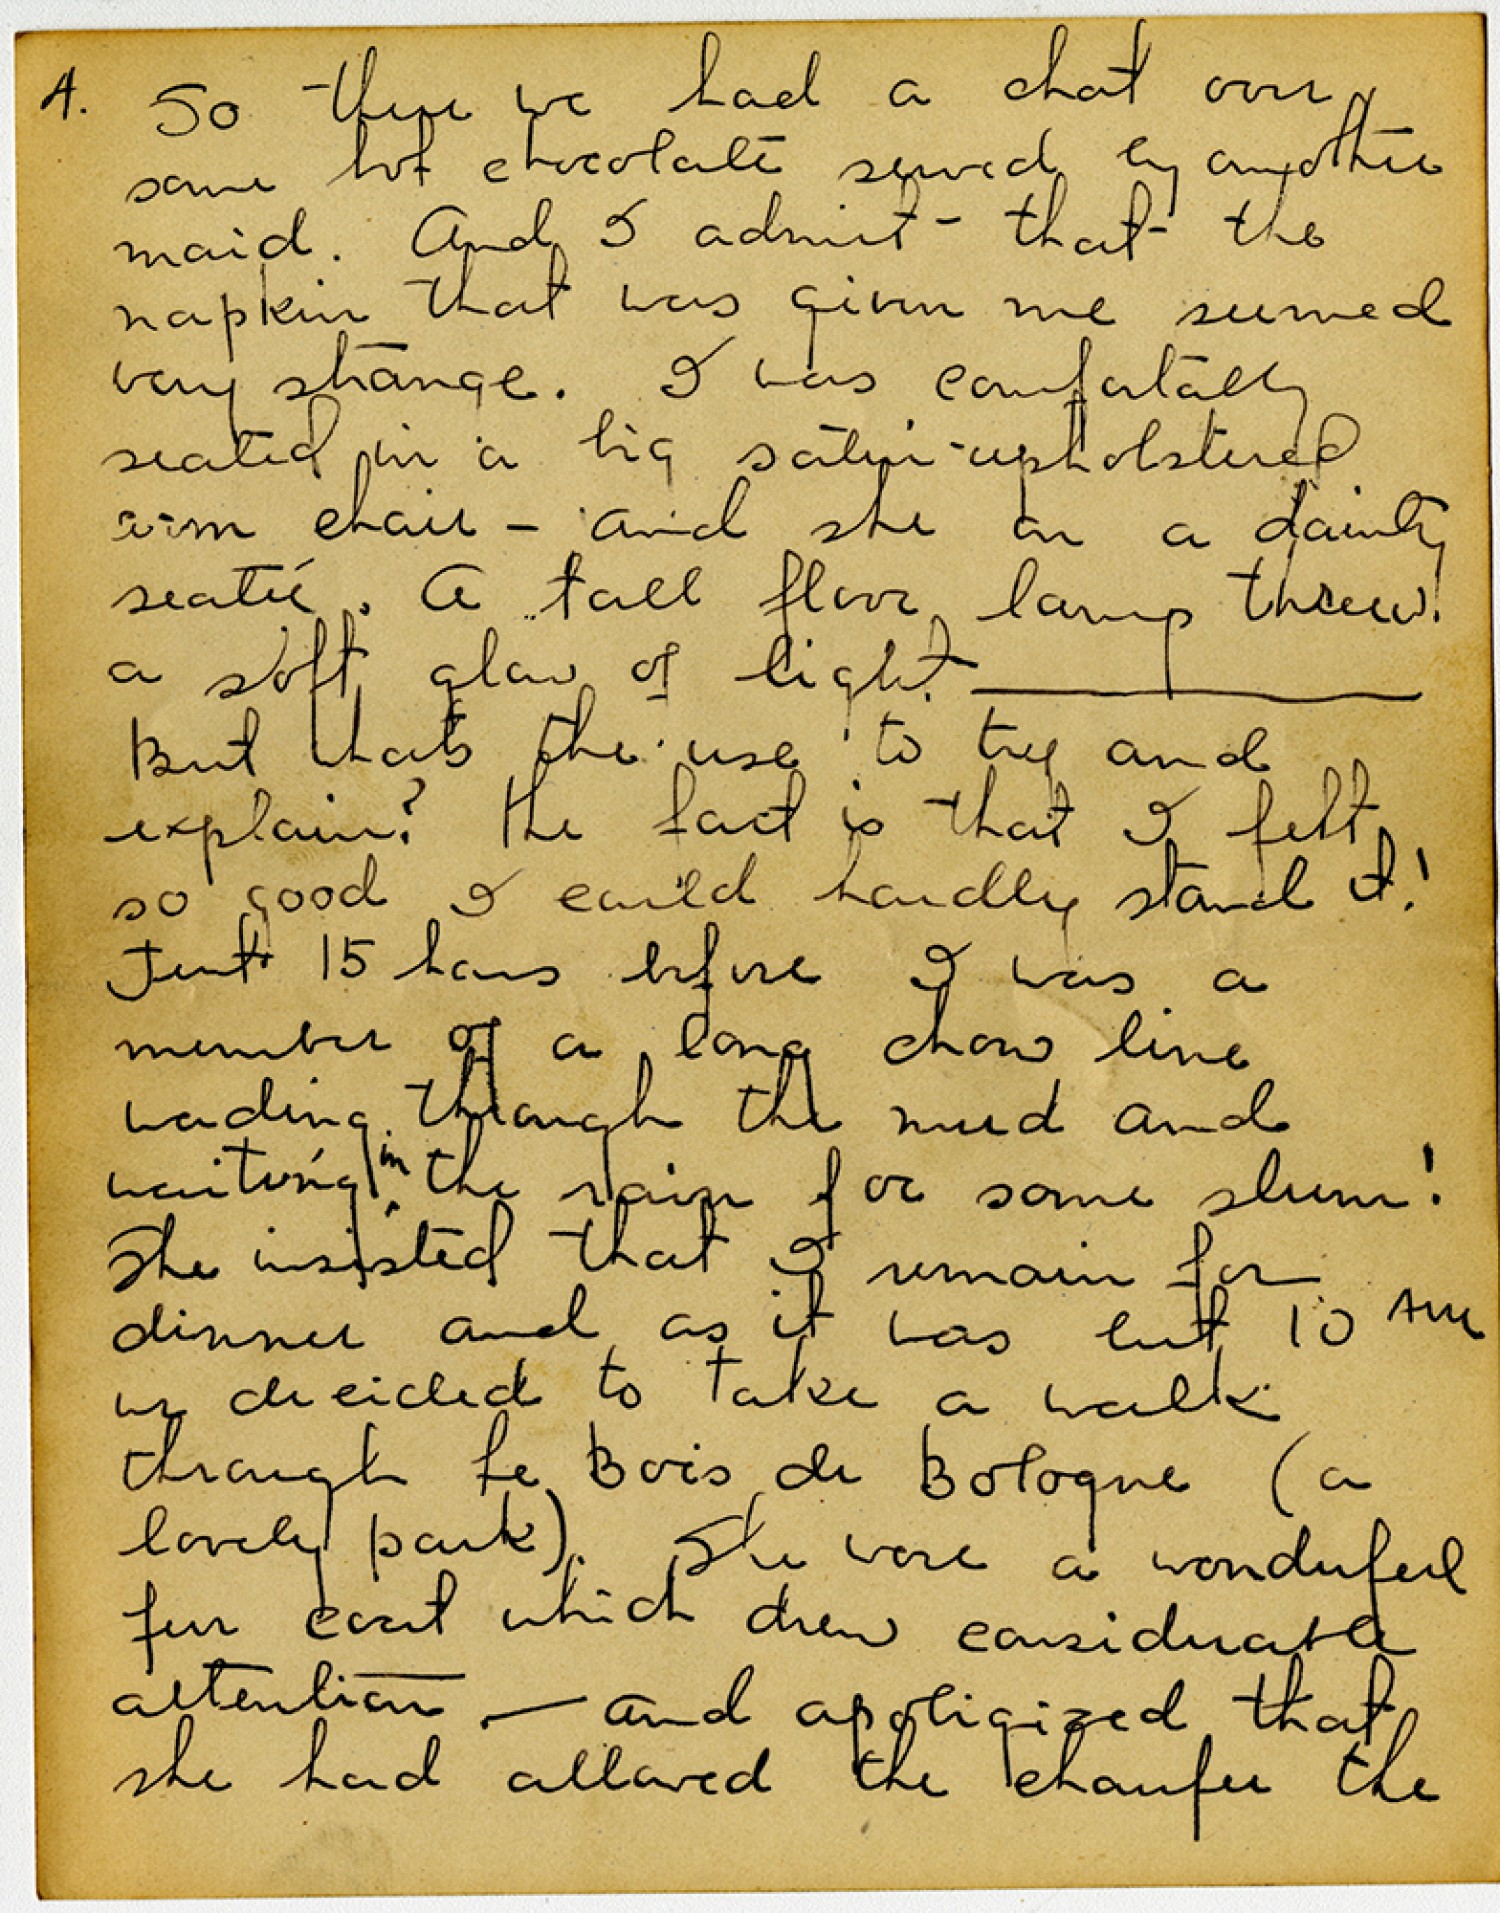 4. So there we had a chat over
some hot chocolate served by another
maid. And I admit that the
napkin that was given me seemed
very strange. I was comfortably
seated in a big satin-upholstered
arm chair – and she on a dainty
seatée. A tall floor lamp threw
a soft glow of light.
But thats the use to try and
explain? The fact is that I felt
so good I could hardly stand it!
Just 15 hours before I was a
member of a long chow line
wading through the mud and
waiting in the rain for some slum!
She insisted that I remain for
dinner and as it was but 10 AM
we decided to take a walk
through le Bois de Bologne (a
lovely park). She wore a wonderful
fur coat which drew considerable
attention. – and apoligized that
she had allowed the chaufee the